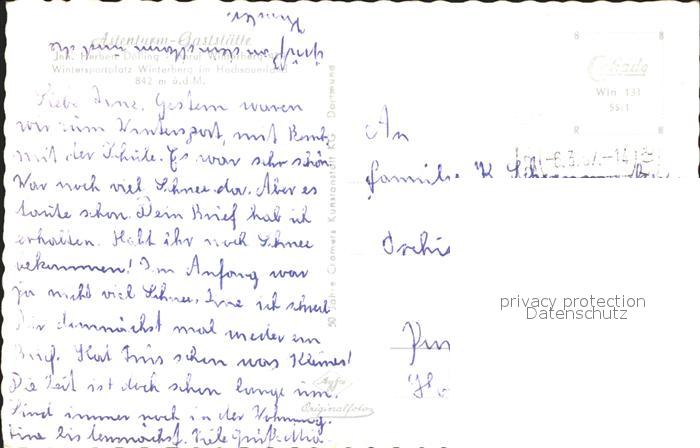 Astenturm-Gaststätte
Wintersportplatz Winterberg im Hochsauerland
842 m ü.d.M.
Liebe Irene. Gestern waren
wir zum Wintersport, mit
mit der Schule. Es war sehr schön
War noch viel Schnee da. Aber es
taute schon. Dein Brief hab ich
erhalten. Habt ihr noch Schnee
bekommen! Im Anfang war
ja nicht viel Schnee. Irene ich schreib
Dir demnächst mal wieder ein
Brief. Hat schon was Kleines!
Die Zeit ist doch schon lange um.
Sind immer noch in der Wohnung.
bis demnächst. Viele Grüße
50 Jahre Cramers Kunstanstalt KG Dortmund
Agfa
Originalfoto
Cekade
Win 131
55/1
8 8
8 8
-6.3. -14
An
Familie K
privacy protection
Datenschutz